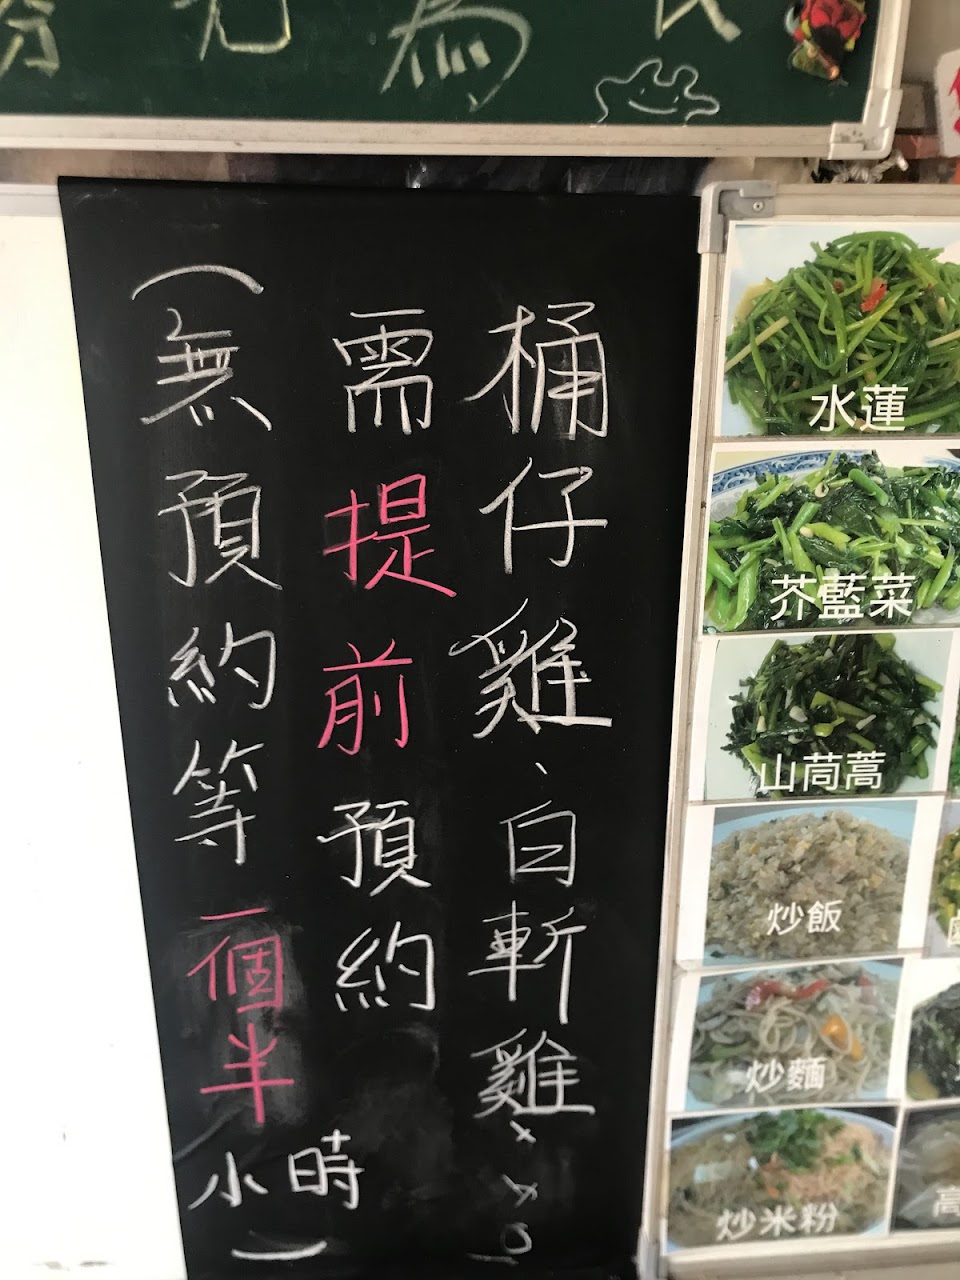 為
桶仔雞、白斬雞
需提前預約
(無預約等一個半小時)
水蓮
芥藍菜
山茼蒿
炒飯
炒麵
炒米粉